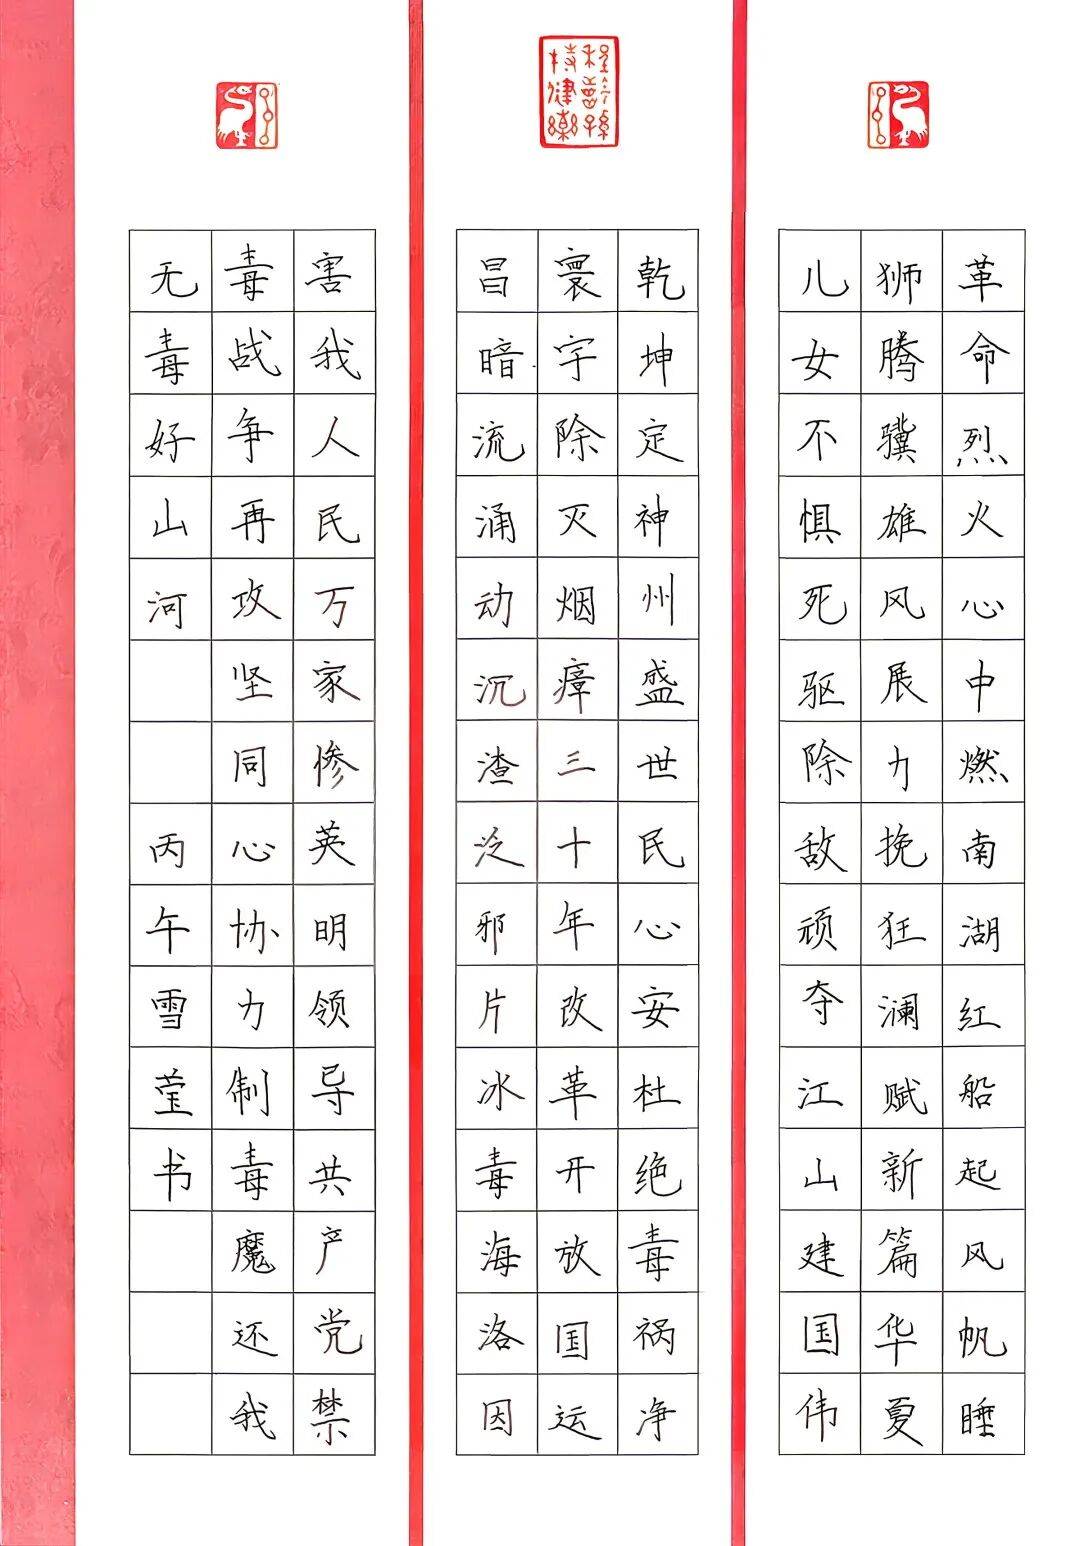 革命烈火心中燃南湖红船起风帆睡
狮腾骥雄风展力挽狂澜赋新篇华夏
儿女不惧死驱除敌顽夺江山建国伟
乾坤定神州盛世民心安杜绝毒祸净
寰宇除灭烟瘴三十年改革开放国运
昌暗流涌动沉渣泛邪片冰毒海洛因
害我人民万家惨英明领导共产党禁
毒战争再攻坚同心协力制毒魔还我
无毒好山河
丙午雪莹书